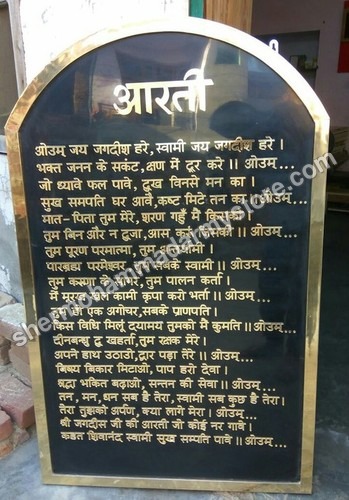 आरती
ओउम् जय जगदीश हरे, स्वामी जय जगदीश हरे ।
भक्त जनन के सकंट, क्षण में दूर करे ।। ओउम्...
जो ध्यावे फल पावे, दुख विनसे मन का ।
सुख सम्पति घर आवे, कष्ट मिटे तन का ।। ओउम्...
मात-पिता तुम मेरे, शरण गहूँ मैं किसकी
तुम बिन और न दूजा, आस करूँ जिसकी ।। ओउम्...
तुम पूरण परमात्मा, तुम अन्तर्यामी ।
पारब्रह्म परमेश्वर, तुम सबके स्वामी ।। ओउम्...
तुम करुणा के सागर, तुम पालन कर्ता ।
मैं मूरख खल कामी कृपा करो भर्ता ।। ओउम्...
तुम हो एक अगोचर, सबके प्राणपति ।
किस विधि मिलूं दयामय तुमको मैं कुमति ।। ओउम्...
दीनबन्धु दु खहर्ता, तुम रक्षक मेरे ।
अपने हाथ उठाओ, द्वार पड़ा तेरे ।। ओउम्...
बिषय बिकार मिटाओ, पाप हरो देवा ।
श्रद्धा भक्ति बढ़ाओ, सन्तन की सेवा ।। ओउम्...
तन, मन, धन सब है तेरा, स्वामी सब कुछ है तेरा ।
तेरा तुझको अर्पण, क्या लागे मेरा । ओउम्...
श्री जगदीश जी की आरती जो कोई नर गावे ।
कहत शिवानंद स्वामी सुख सम्पति पावे ।। ओउम्...